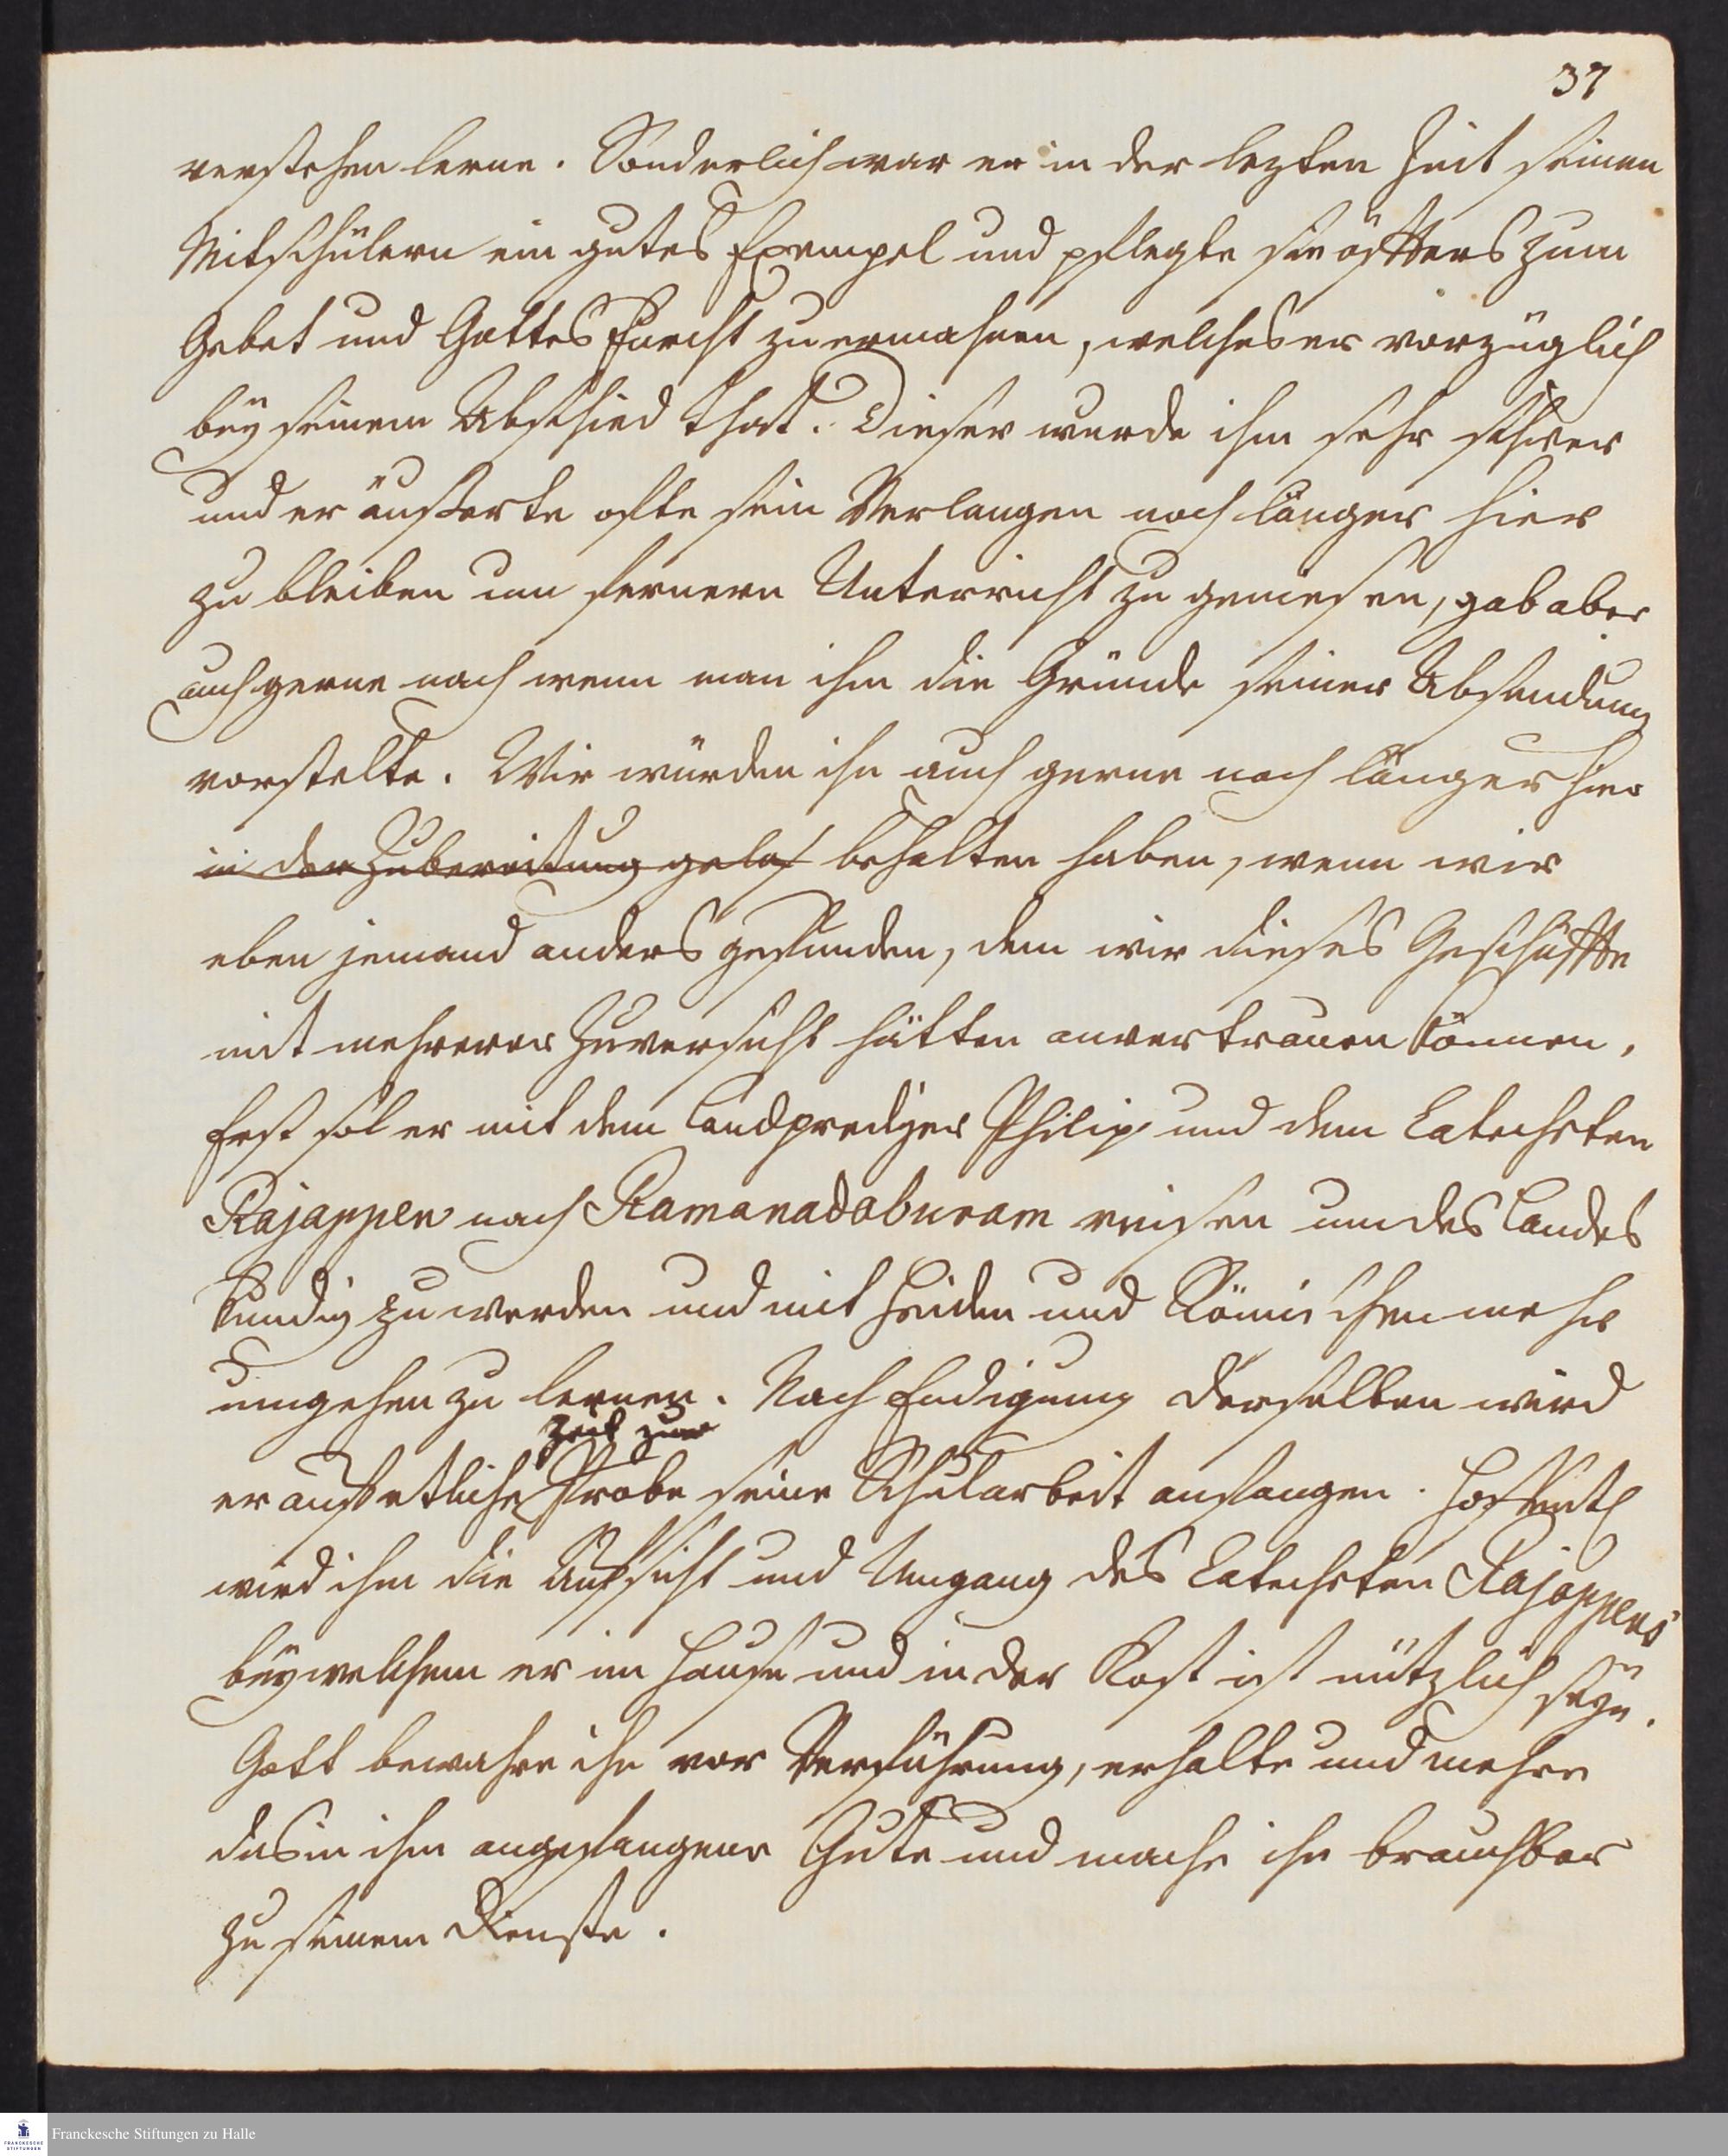 37
verstehen lerne. Sonderlich war er in der lezten Zeit seinen
Mitschülern ein gutes Exempel und pflegte sie öffters zum
Gebet und Gottes Furcht zu ermahnen, welches er vorzüglich
bey seinem Abschied that. Dieser wurde ihm sehr schwer
und er äußerte ofte sein Verlangen noch länger hier
zu bleiben um fernern Unterricht zu geniesen, gab aber
auch gerne nach wenn man ihm die Gründe seiner Absendung
vorstelte. Wir würden ihn auch gerne noch länger hier
in der Zubereitung gelaß behalten haben, wenn wir
eben jemand anders gefunden, dem wir dieses Geschäffte
mit mehrerer Zuversicht hätten anvertrauen können,
Erst sol er mit dem Landprediger Philip und dem Catecheten
Rajappen nach Ramanadaburam reisen um des Landes
kundig zu werden und mit Heiden und Römischen mehr
umgehen zu lernen. Nach Endigung derselben wird
Zeit zur
er auf etliche Probe seine Schularbeit anfangen. Hoffentl
wird ihm die Aufsicht und Umgang des Catecheten Rajappens
bey welchem er im Hause und in der Kost ist nützlich seyn.
Gott bewahre ihn vor Verführung, erhalte und mehre
das in ihm angefangene Gute und mache ihn brauchbar
zu seinem Dienste.
Franckesche Stiftungen zu Halle
FRANCKESCHE
STIFTUNGEN